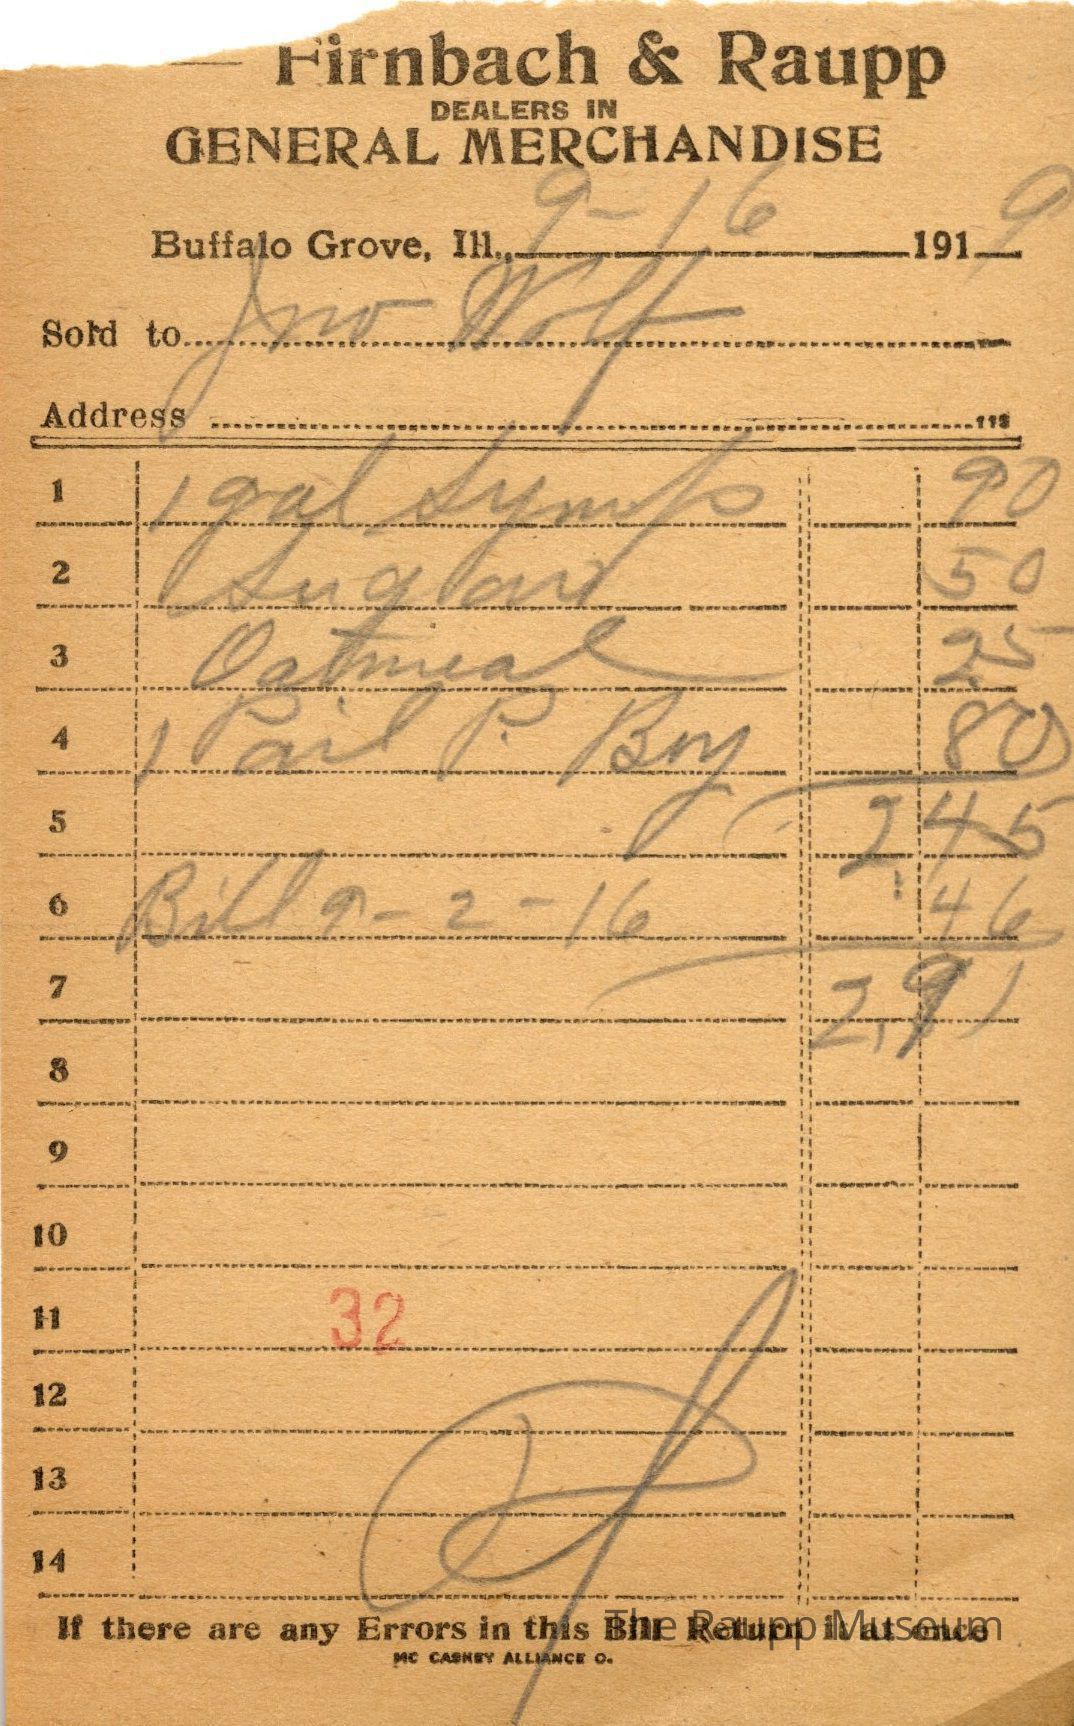 Firnbach & Raupp
DEALERS IN
GENERAL MERCHANDISE
Buffalo Grove, Ill., 9-16 1919
Sold to Jno Wolf
Address
1 1 gal Syrup 90
2 Sugar 50
3 Oatmeal 25
4 1 Pail P. Boy 80
5 2 45
6 Bill 9-2-16 46
7 2,91
8
9
10
11 32
12
13
14
If there are any Errors in this Bill Return it at once
The Raupp Museum
MC CASKEY ALLIANCE O.